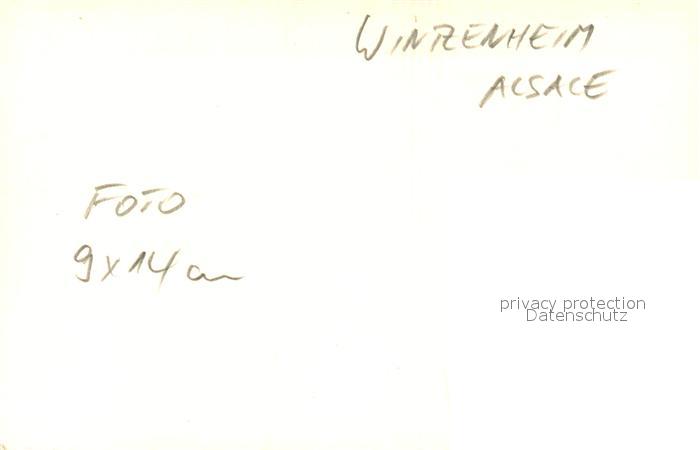 WINTZENHEIM
ALSACE
FOTO
9x14 cm
privacy protection
Datenschutz